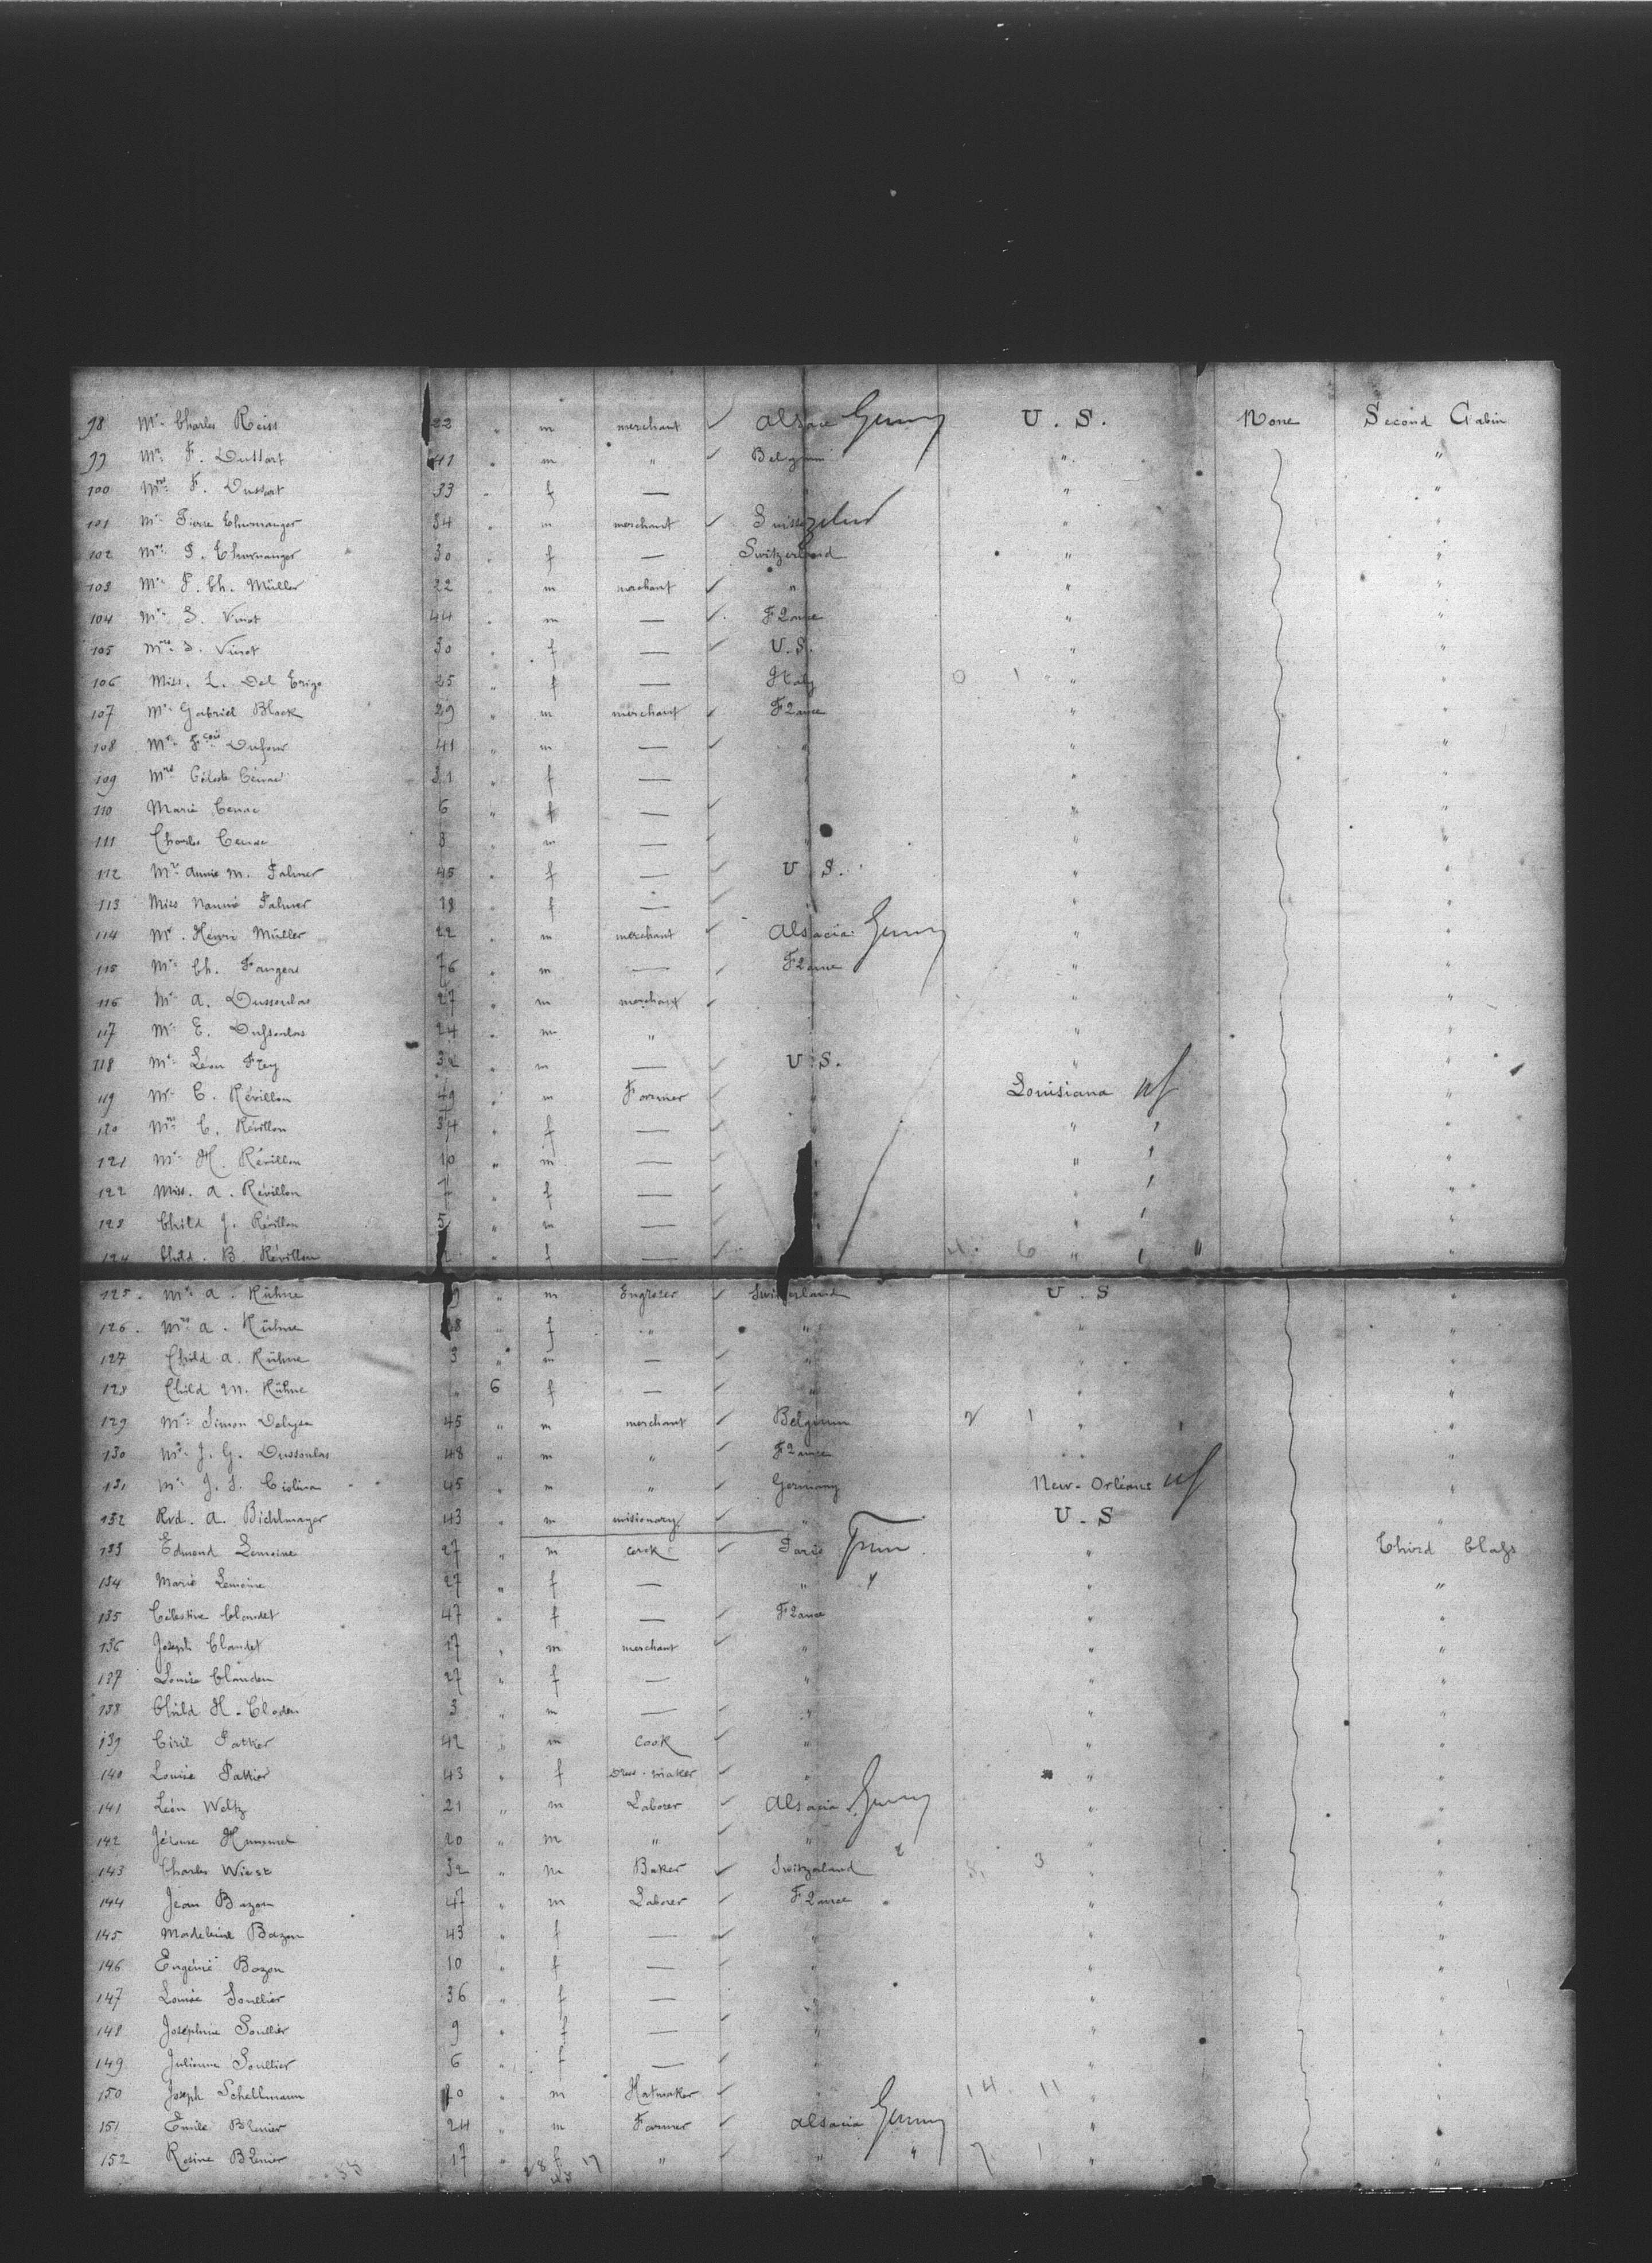 98 Mr. Charles Reiss 22 " m merchant ✓ Alsace Germ U. S. None Second Cabin
99 Mr. F. Dussart 41 " m " ✓ Belgium " "
100 Mrs. F. Dussart 33 " f — " " "
101 Mr. Pierre 34 " m merchant ✓ Suissezelnd " "
102 Mrs. P. 30 " f — Switzerland " "
103 Mr. P. Ch. Müller 22 " m merchant ✓ " " "
104 Mr. S. Vinot 44 " m — ✓ France " "
105 Mrs. S. Vinot 30 " f — ✓ U.S. " "
106 Miss. L. Del Erigo 25 " f — Italy 0 1 " "
107 Mr. Gabriel Block 29 " m merchant ✓ France " "
108 Mr. Fçois Dufour 41 " m — ✓ " " "
109 Mrs Céleste Cénac 31 " f — " " "
110 Marie Cenac 6 " f — ✓ " "
111 Charles Cenac 8 " m — ✓ " " "
112 Mrs. Annie M. Palmer 45 " f — ✓ U. S. " "
113 Miss Nannie Palmer 18 " f — ✓ " " "
114 Mr. Henri Müller 22 " m merchant ✓ Alsacia Germ " "
115 Mr. Ch. Faugeas 76 " m — ✓ France " "
116 Mr. A. Dussoulas 27 " m merchant ✓ " "
117 Mr. E. Dussoulas 24 " m " " "
118 Mr. Léon Frey 32 " m — ✓ U. S. " "
119 Mr. C. Révillon 49 " m Farmer ✓ " Louisiana "
120 Mrs. C. Révillon 34 " f — ✓ " " "
121 Mr. H. Révillon 10 " m — ✓ " " "
122 Miss. A. Révillon 7 " f — ✓ " " "
123 Child J. Révillon 5 " m — ✓ " " "
124 Child. B. Révillon " f — ✓ 4. 6 " "
125. Mr. A. Kühne 9 " m Engraver ✓ Switzerland U. S "
126. Mrs A. Kühne 28 " f " " " "
127 Child A. Kühne 3 " m — ✓ " " "
128 Child M. Kühne " 6 f — ✓ " " "
129 Mr. Simon Delyse 45 " m merchant ✓ Belgium 2 1 " "
130 Mr. J. G. Dussoulas 48 " m " ✓ France " "
131 Mr. J. S. 45 " m " ✓ Germany New-Orléans "
132 Rvd. A. Bichlmayer 43 " m misionary ✓ " U. S "
133 Edmond Lemoine 27 " m cook ✓ Paris Fran " Third Class
134 Marie Lemoine 27 " f — " " "
135 Célestine Claudet 47 " f — ✓ France " "
136 Joseph Claudet 17 " m merchant ✓ " " "
137 Louise Clauden 27 " f — ✓ " " "
138 Child H. Cloden 3 " m — ✓ " " "
139 Ciril Patker 42 " m Cook ✓ " " "
140 Louise Pattier 43 " f Dress-maker ✓ " " "
141 Léon Weltz 21 " m Laborer ✓ Alsacia Germ " "
142 Jérome Hummel 20 " m " ✓ " " "
143 Charles Wiest 32 " m Baker ✓ Switzerland 8. 3 " "
144 Jean Bazon 47 " m Laborer ✓ France " "
145 Madeleine Bazon 43 " f — " " "
146 Eugénie Bazon 10 " f — ✓ " " "
147 Louise Soullier 36 " f — " " "
148 Joséphine Soullier 9 " f — ✓ " " "
149 Julienne Soullier 6 " f — ✓ " " "
150 Joseph Schellmann 20 " m Hatmaker ✓ " 14. 11 " "
151 Emile Blenier 24 " m Farmer ✓ Alsacia Germ " "
152 Rosine Blenier 17 " f " ✓ " 7 1 " "
28 17